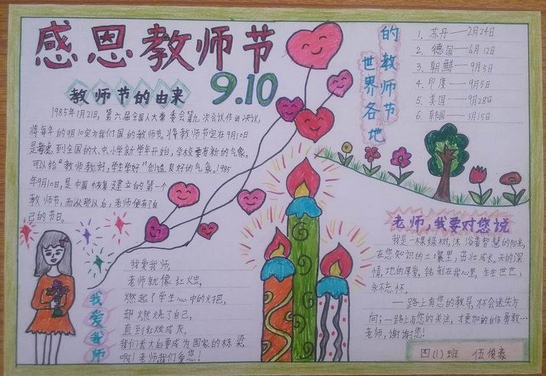 感恩教师节
9.10
教师节的由来
1985年1月21日，第六届全国人大常委会第九次会议作出决议，
将每年的9月10定为我们国的教师节。将教师节定在9月10日
是考虑到全国的大、中、小学新学年开始，学校要有新的气象。
可以给"教师教好，学生学好"创造良好的气氛。1985
年9月10日，是中国恢复建立的第一个
教师节，而从那以后，老师便有了自
己的节日。
世界各地
的教师节
1. 苏丹——2月24日
2. 德国——6月12日
3. 朝鲜——9月5日
4. 印度——9月5日
5. 美国——9月28日
6. 韩国——5月15日
我爱我师
我爱我师，
老师就像红火虫，
燃起了学生心中的火把，
那燃烧了自己，
直到红烛成灰，
我们长大后要成为国家的栋梁
啊！老师我们爱您！
老师，我要对您说
我是一棵绿树，沐浴着智慧的阳光，
在您知识的土壤里，茁壮成长。天的深
情，地的厚爱，铭刻在我心里，生生世世，
永不忘怀。
一路上有您的教导，才会迷失方
向；一路上有您的关注，才更加的自信勇敢…
老师，谢谢您！
四(1)班 伍俊